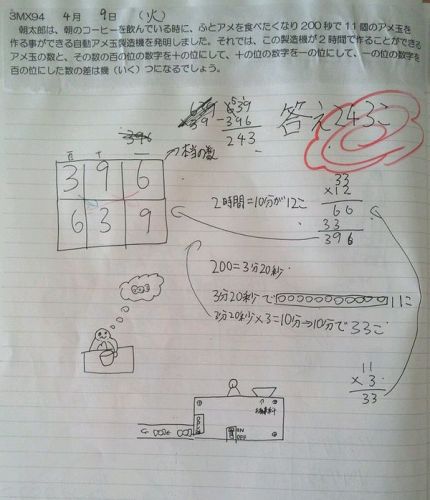 3MX94　4月　9日　(火)
朝太郎は、朝のコーヒーを飲んでいる時に、ふとアメを食べたくなり200秒で11個のアメ玉を
作る事ができる自動アメ玉製造機を発明しました。それでは、この製造機が2時間で作ることができる
アメ玉の数と、その数の百の位の数字を十の位にして、十の位の数字を一の位にして、一の位の数字を
百の位にした数の差は幾（いく）つになるでしょう。
639
-396
243
答え243こ
396
本当の数
百 十 一
3 9 6
6 3 9
2時間=10分が12こ
33
×12
66
33
396
200=3分20秒
3分20秒で○○○○○○○○○○○11こ
3分20秒×3=10分→10分で33こ
11
×3
33
ON
OFF